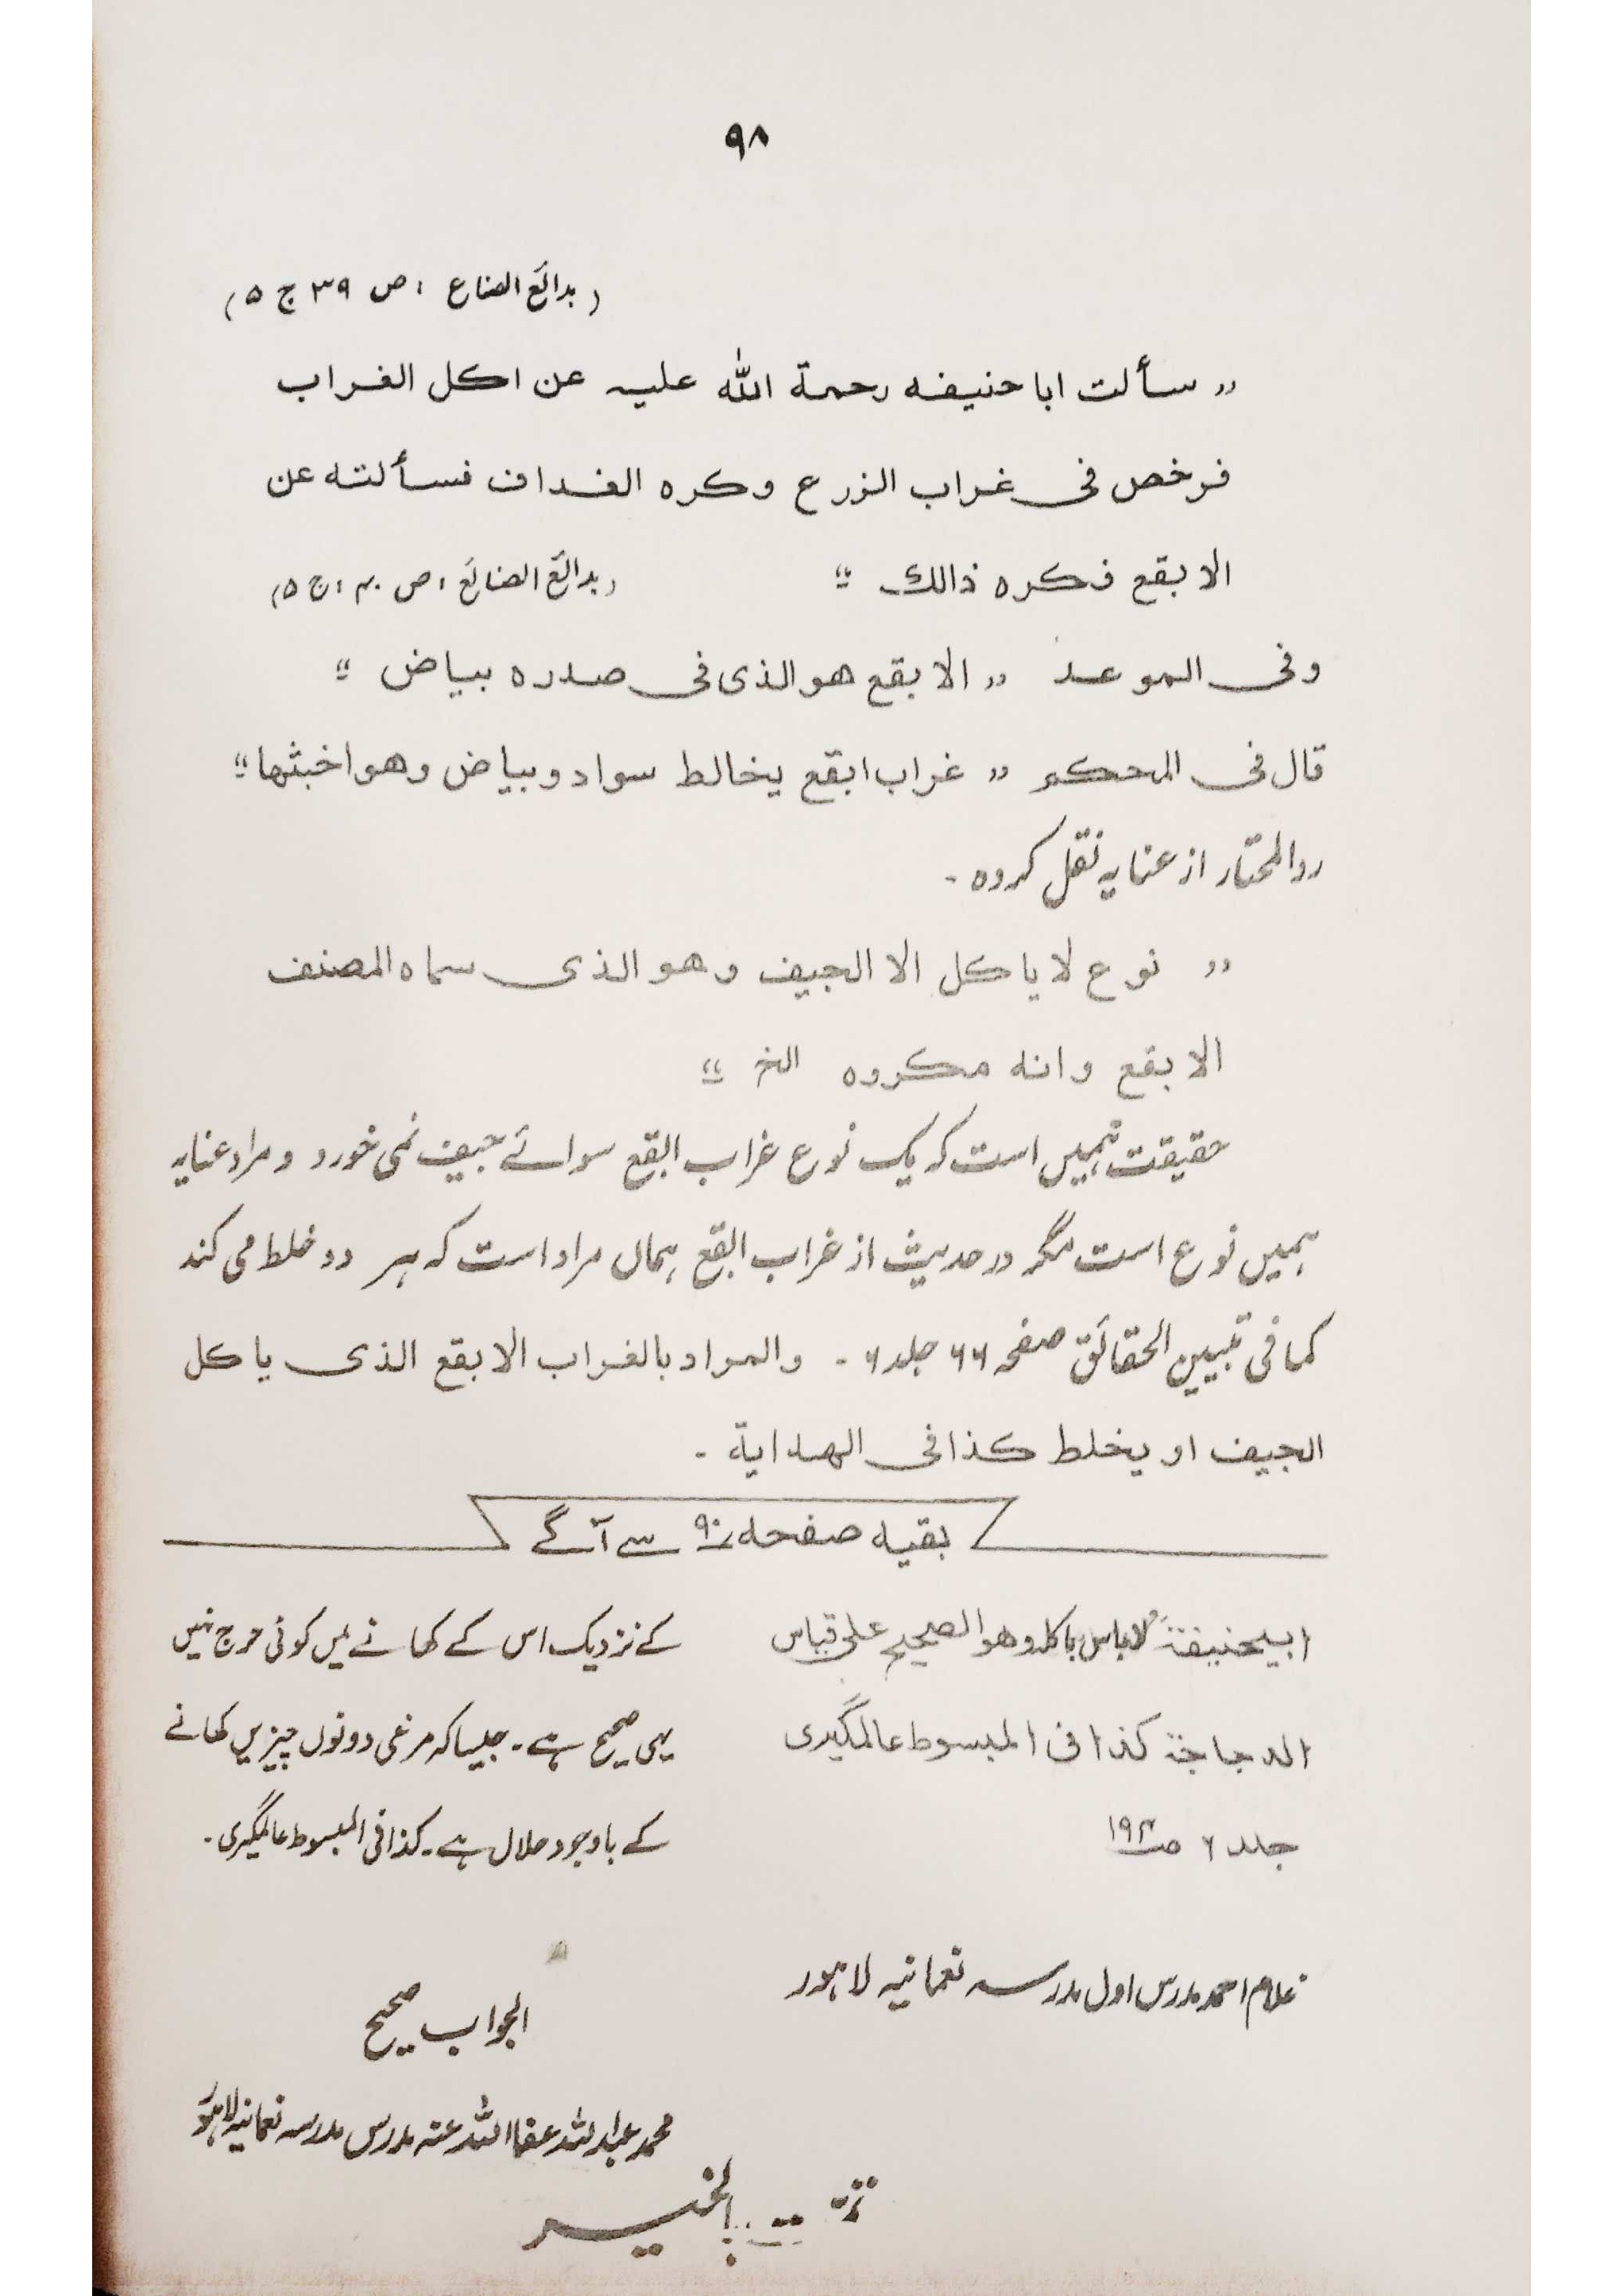 ۹۸
( بدائع الصناع ؛ ص ۳۹ ج ۵ )
〃 سألت ابا حنیفه رحمة الله علیه عن اکل الغراب
فرخص فی غراب الزرع وکره الغداف فسألته عن
الابقع فکره ذالك ؛؛ ( بدائع الصنائع ؛ ص ۴۰ ؛ ج ۵ )
وفی الموعد 〃 الابقع هو الذی فی صدره بیاض ؛؛
قال فی المحکم 〃 غراب ابقع یخالط سواد وبیاض وهو اخبثها ؛؛
ردالمحتار از عنایہ نقل کردہ ۔
〃 نوع لا یاکل الا الجیف وهو الذی سماه المصنف
الابقع وانه مکروه الخ ؛؛
حقیقت ہمیں است کہ یک نوع غراب ابقع سوائے جیف نمی خورد و مراد عنایہ
ہمیں نوع است مگر در حدیث از غراب ابقع ہماں مراد است کہ ہر دو خلط می کند
کما فی تبیین الحقائق صفحہ ۶۶ جلد ۶ ۔ والمراد بالغراب الابقع الذی یاکل
الجیف او یخلط کذا فی الهدایة ۔
بقیہ صفحہ ۹۰ سے آگے
ابیحنیفةؒ لا باس باکله وهو الصحیح علی قیاس
الدجاجة کذا فی المبسوط عالمگیری
جلد ۶ ص۱۹۲
کے نزدیک اس کے کھانے میں کوئی حرج نہیں
یہی صحیح ہے۔ جیسا کہ مرغی دونوں چیزیں کھانے
کے باوجود حلال ہے۔ کذا فی المبسوط عالمگیری ۔
غلام احمد مدرس اول مدرسہ نعمانیہ لاہور
الجواب صحیح
محمد عبداللہ عفا اللہ عنہ مدرس مدرسہ نعمانیہ لاہور
تمت بالخیر